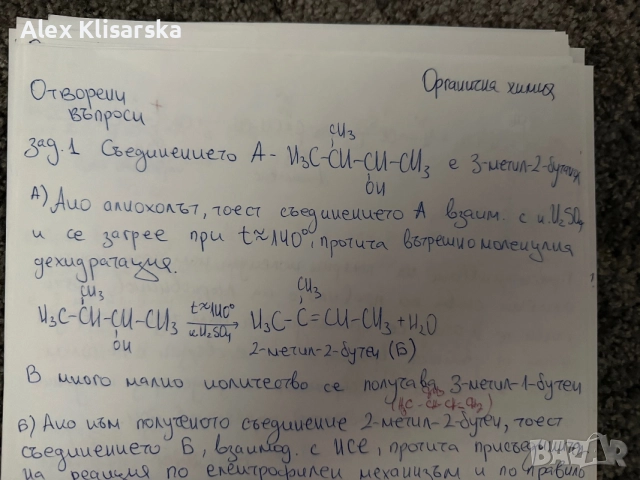 Alex Klisarska
Органична химия
Отворени
въпроси
CH3
зад.1 Съединението А - H3C-CH-CH-CH3 е 3-метил-2-бутанол
OH
А) Ако алкохолът, тоест съединението А взаим. с к.H2SO4
и се загрее при t≈140°, протича вътрешномолекулна
дехидратация.
CH3 CH3
H3C-CH-CH-CH3 t≈140° к.H2SO4 H3C-C=CH-CH3 + H2O
OH 2-метил-2-бутен (Б)
В много малко количество се получава 3-метил-1-бутен
Б) Ако към полученото съединение 2-метил-2-бутен, тоест
съединението Б, взаимод. с HCl, протича
на реакция по електрофилен механизъм и по правило
BAZAR